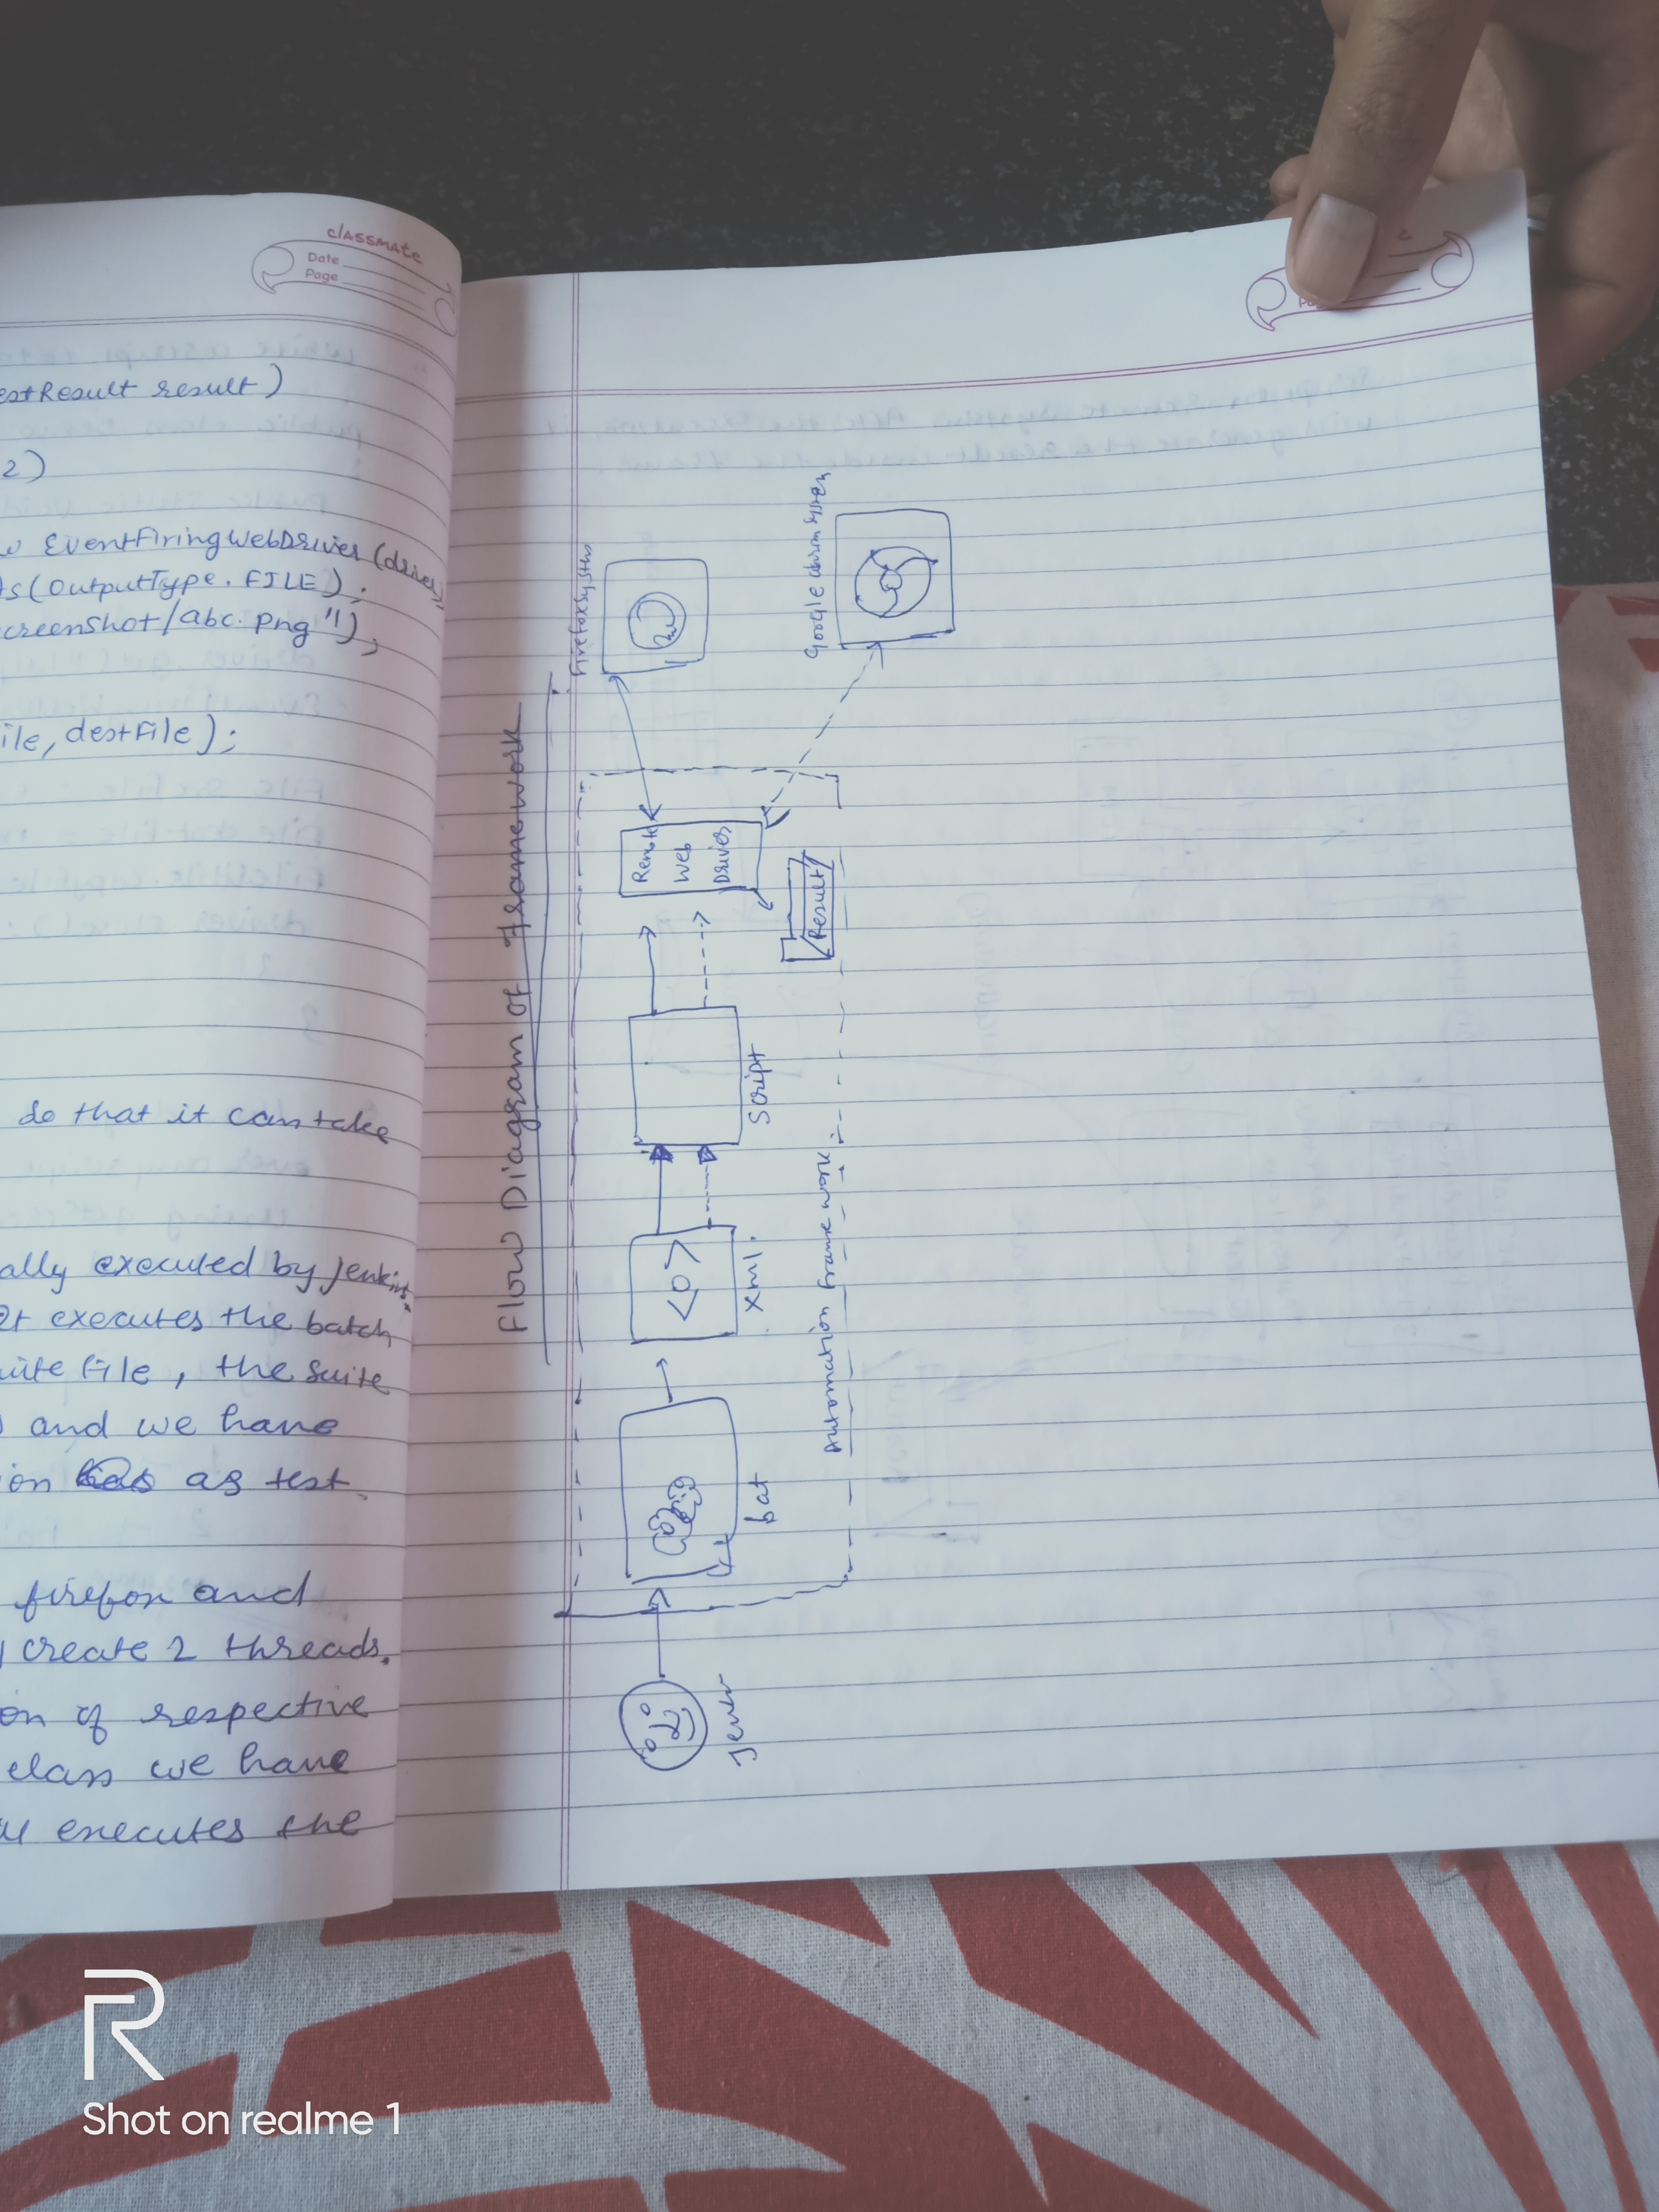 classmate
Date
Page
estResult result)
2)
EventFiringWebDriver (driver
As(OutputType.FILE);
creenshot/abc.png");
ile, destFile);
do that it can take
ally executed by jenkins.
It executes the batch
uite file, the suite
and we have
ion as test.
firefox and
create 2 threads.
on of respective
class we have
executes the
Flow Diagram of Framework
Firefox System
Google
Remote
Web
Driver
Result
Script
<0>
xml.
bat
Automation frame work
Shot on realme 1